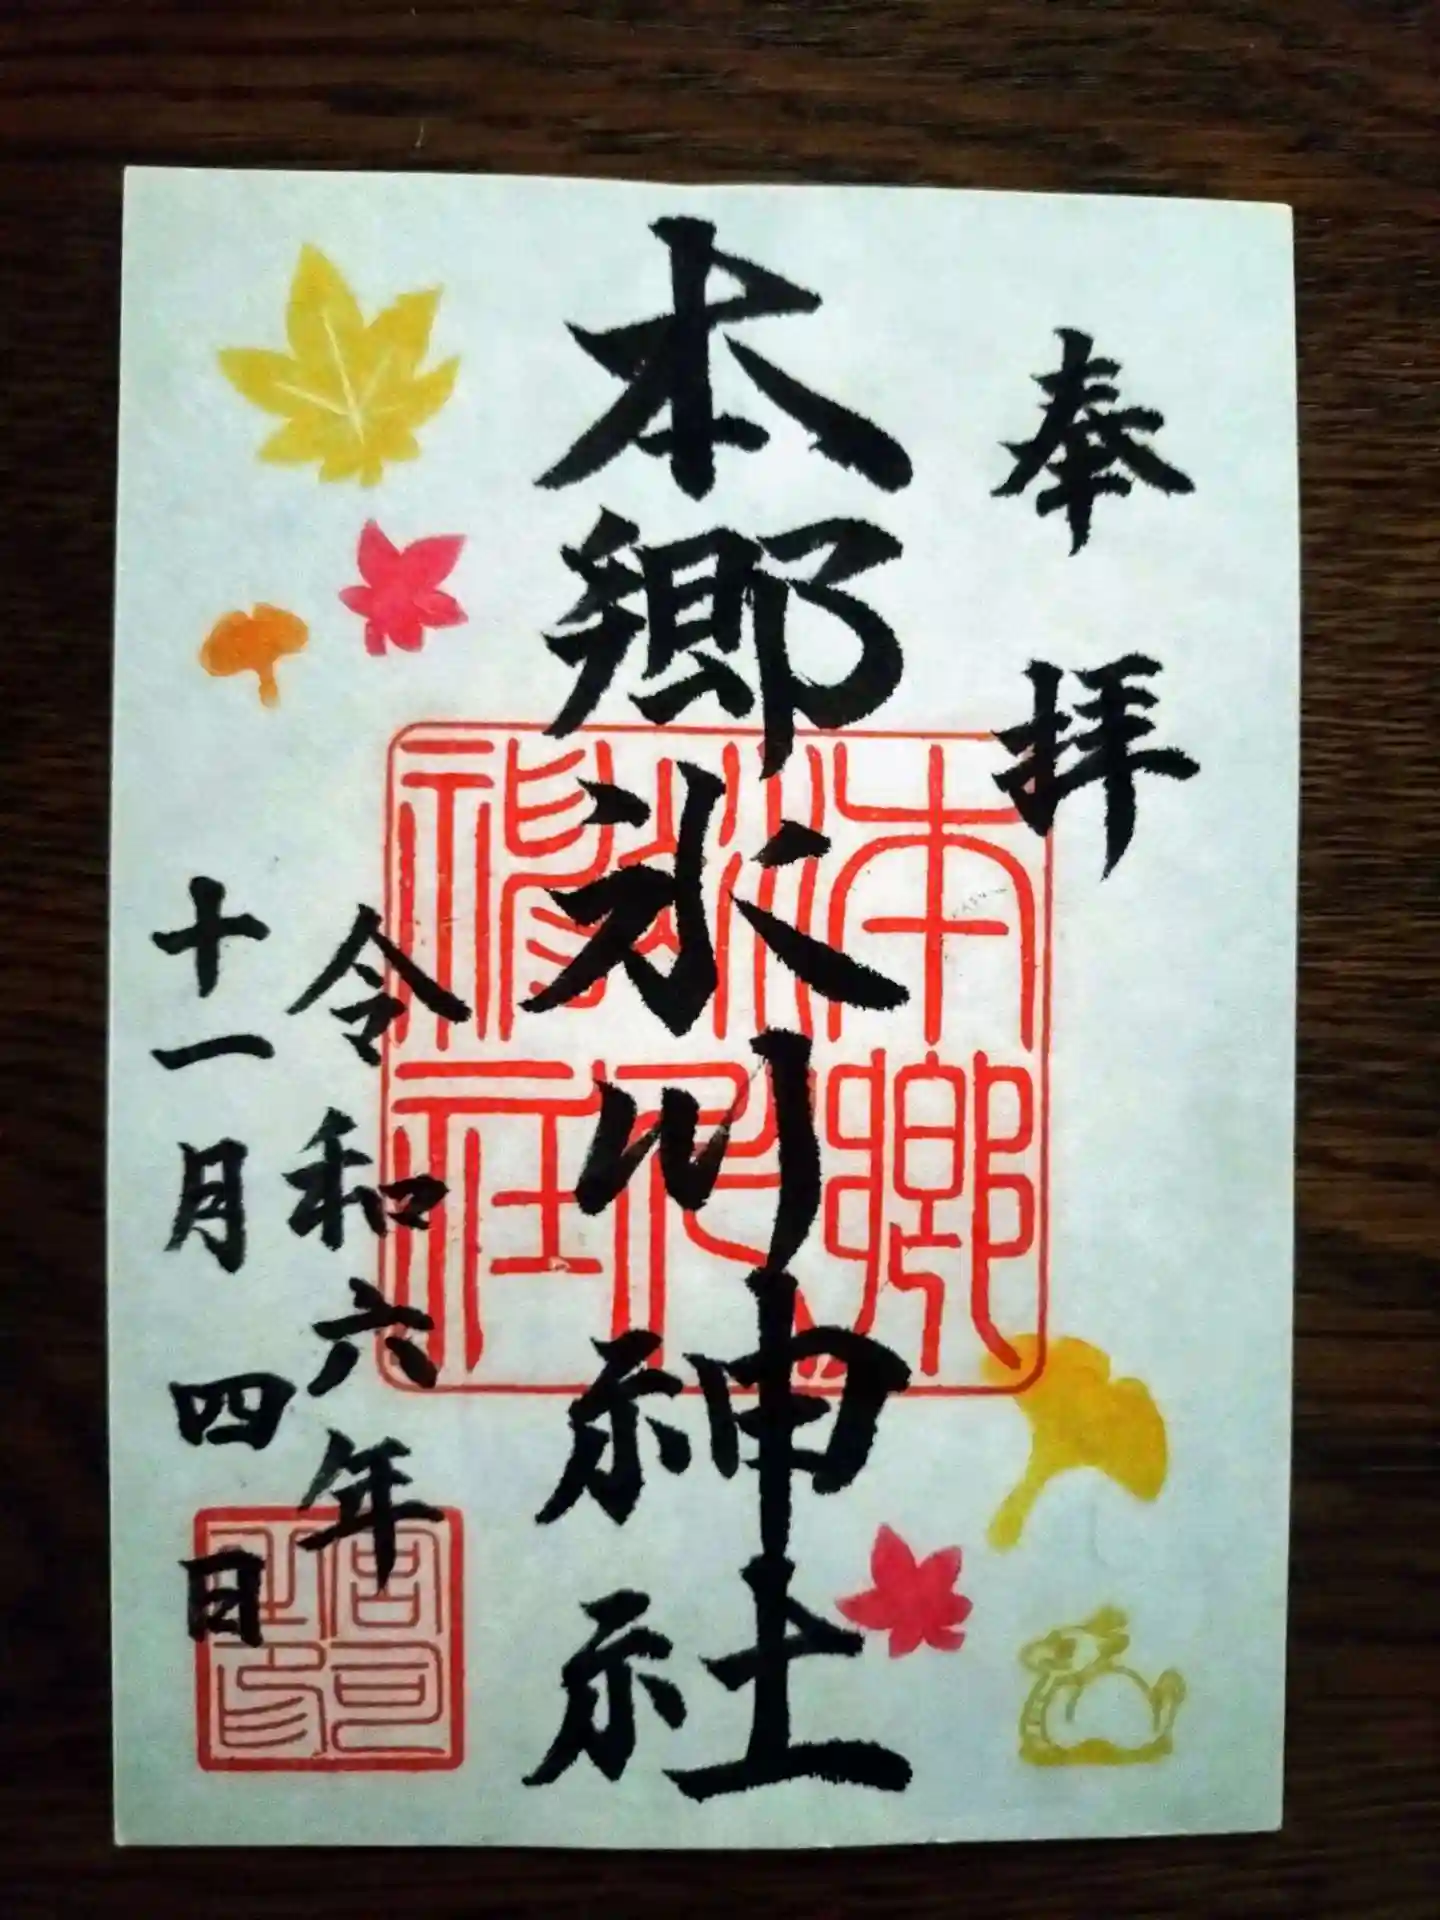 奉拝
本郷氷川神社
令和六年
十一月四日
本郷
氷川
神社
宮司
之印